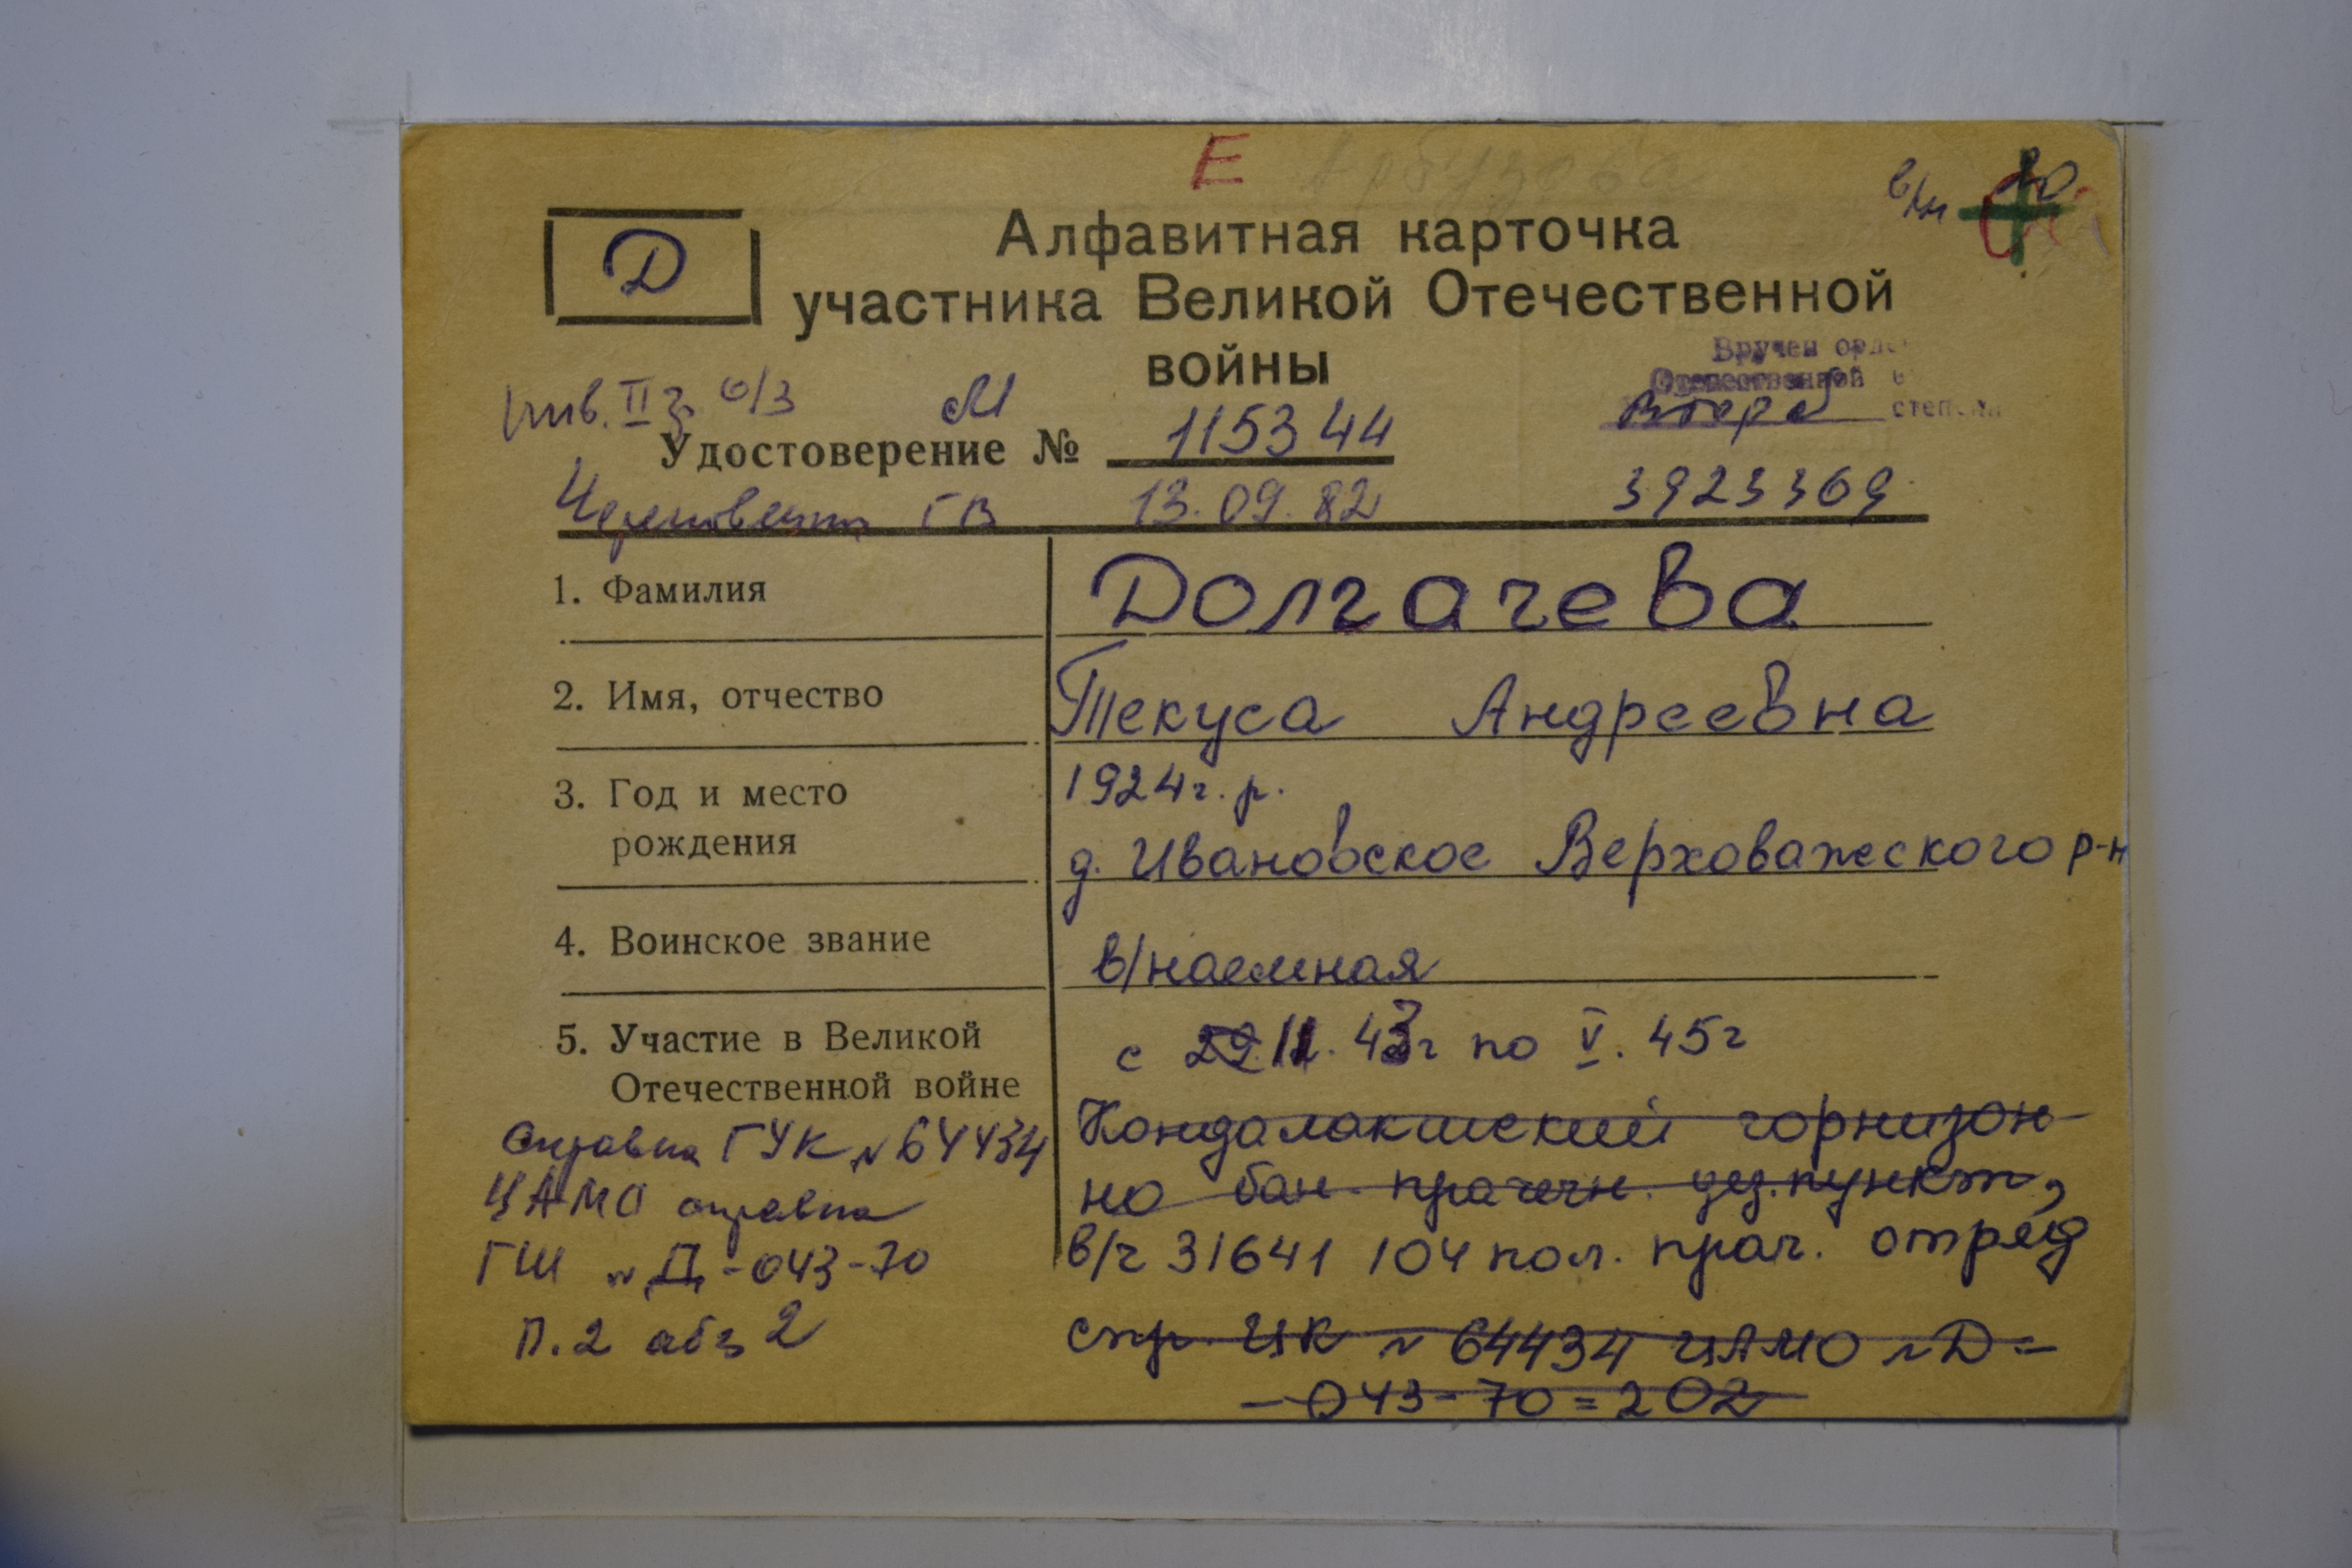 Е Арбузова
в/н
Д
Алфавитная карточка
участника Великой Отечественной
войны
Вручен орде
Отечественной в
Второй степени
инв. II г. о/з М
Удостоверение № 115344
ГВ 13.09.82 3923369
1. Фамилия Долгачева
2. Имя, отчество Текуса Андреевна
3. Год и место 1924 г. р.
рождения д. Ивановское Верховажского р-н
4. Воинское звание в/наемная
5. Участие в Великой с 29.11.43г по V. 45г
Отечественной войне
Справка ГУК № 64434 Кондалакшский горнизон
ЦАМО справка но бан. прачечн. дез. пункт,
ГШ № Д-043-70 в/ч 31641 104 пол. прач. отряд
п. 2 абз 2 спр. ЦК № 64434 ЦАМО № Д-
-043-70=202